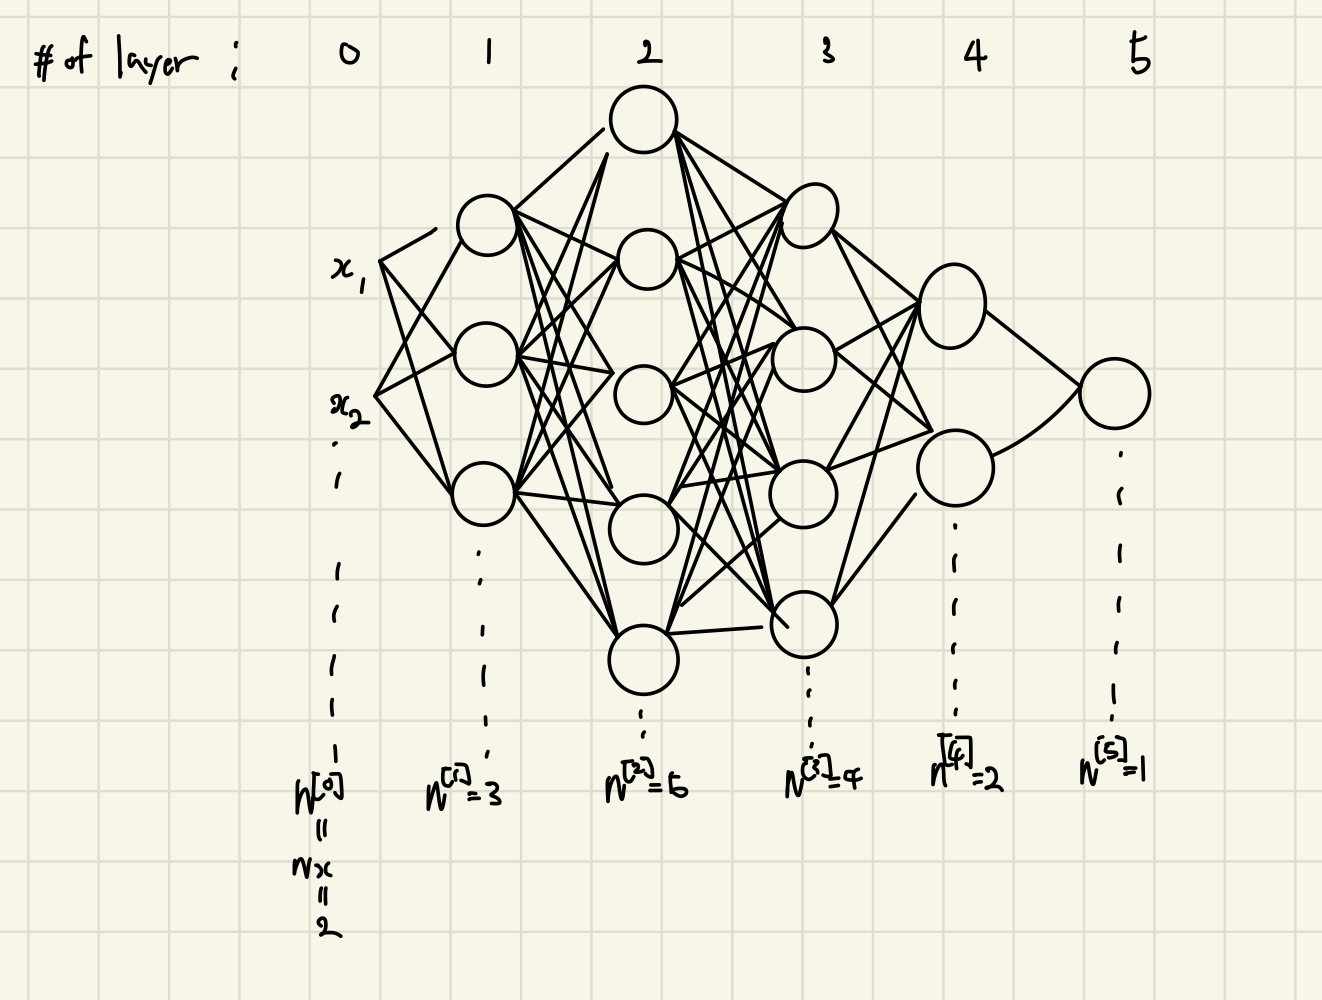 # of layer : 0 1 2 3 4 5
x₁
x₂
n[0] n[1]=3 n[2]=5 n[3]=4 n[4]=2 n[5]=1
=
nx
=
2